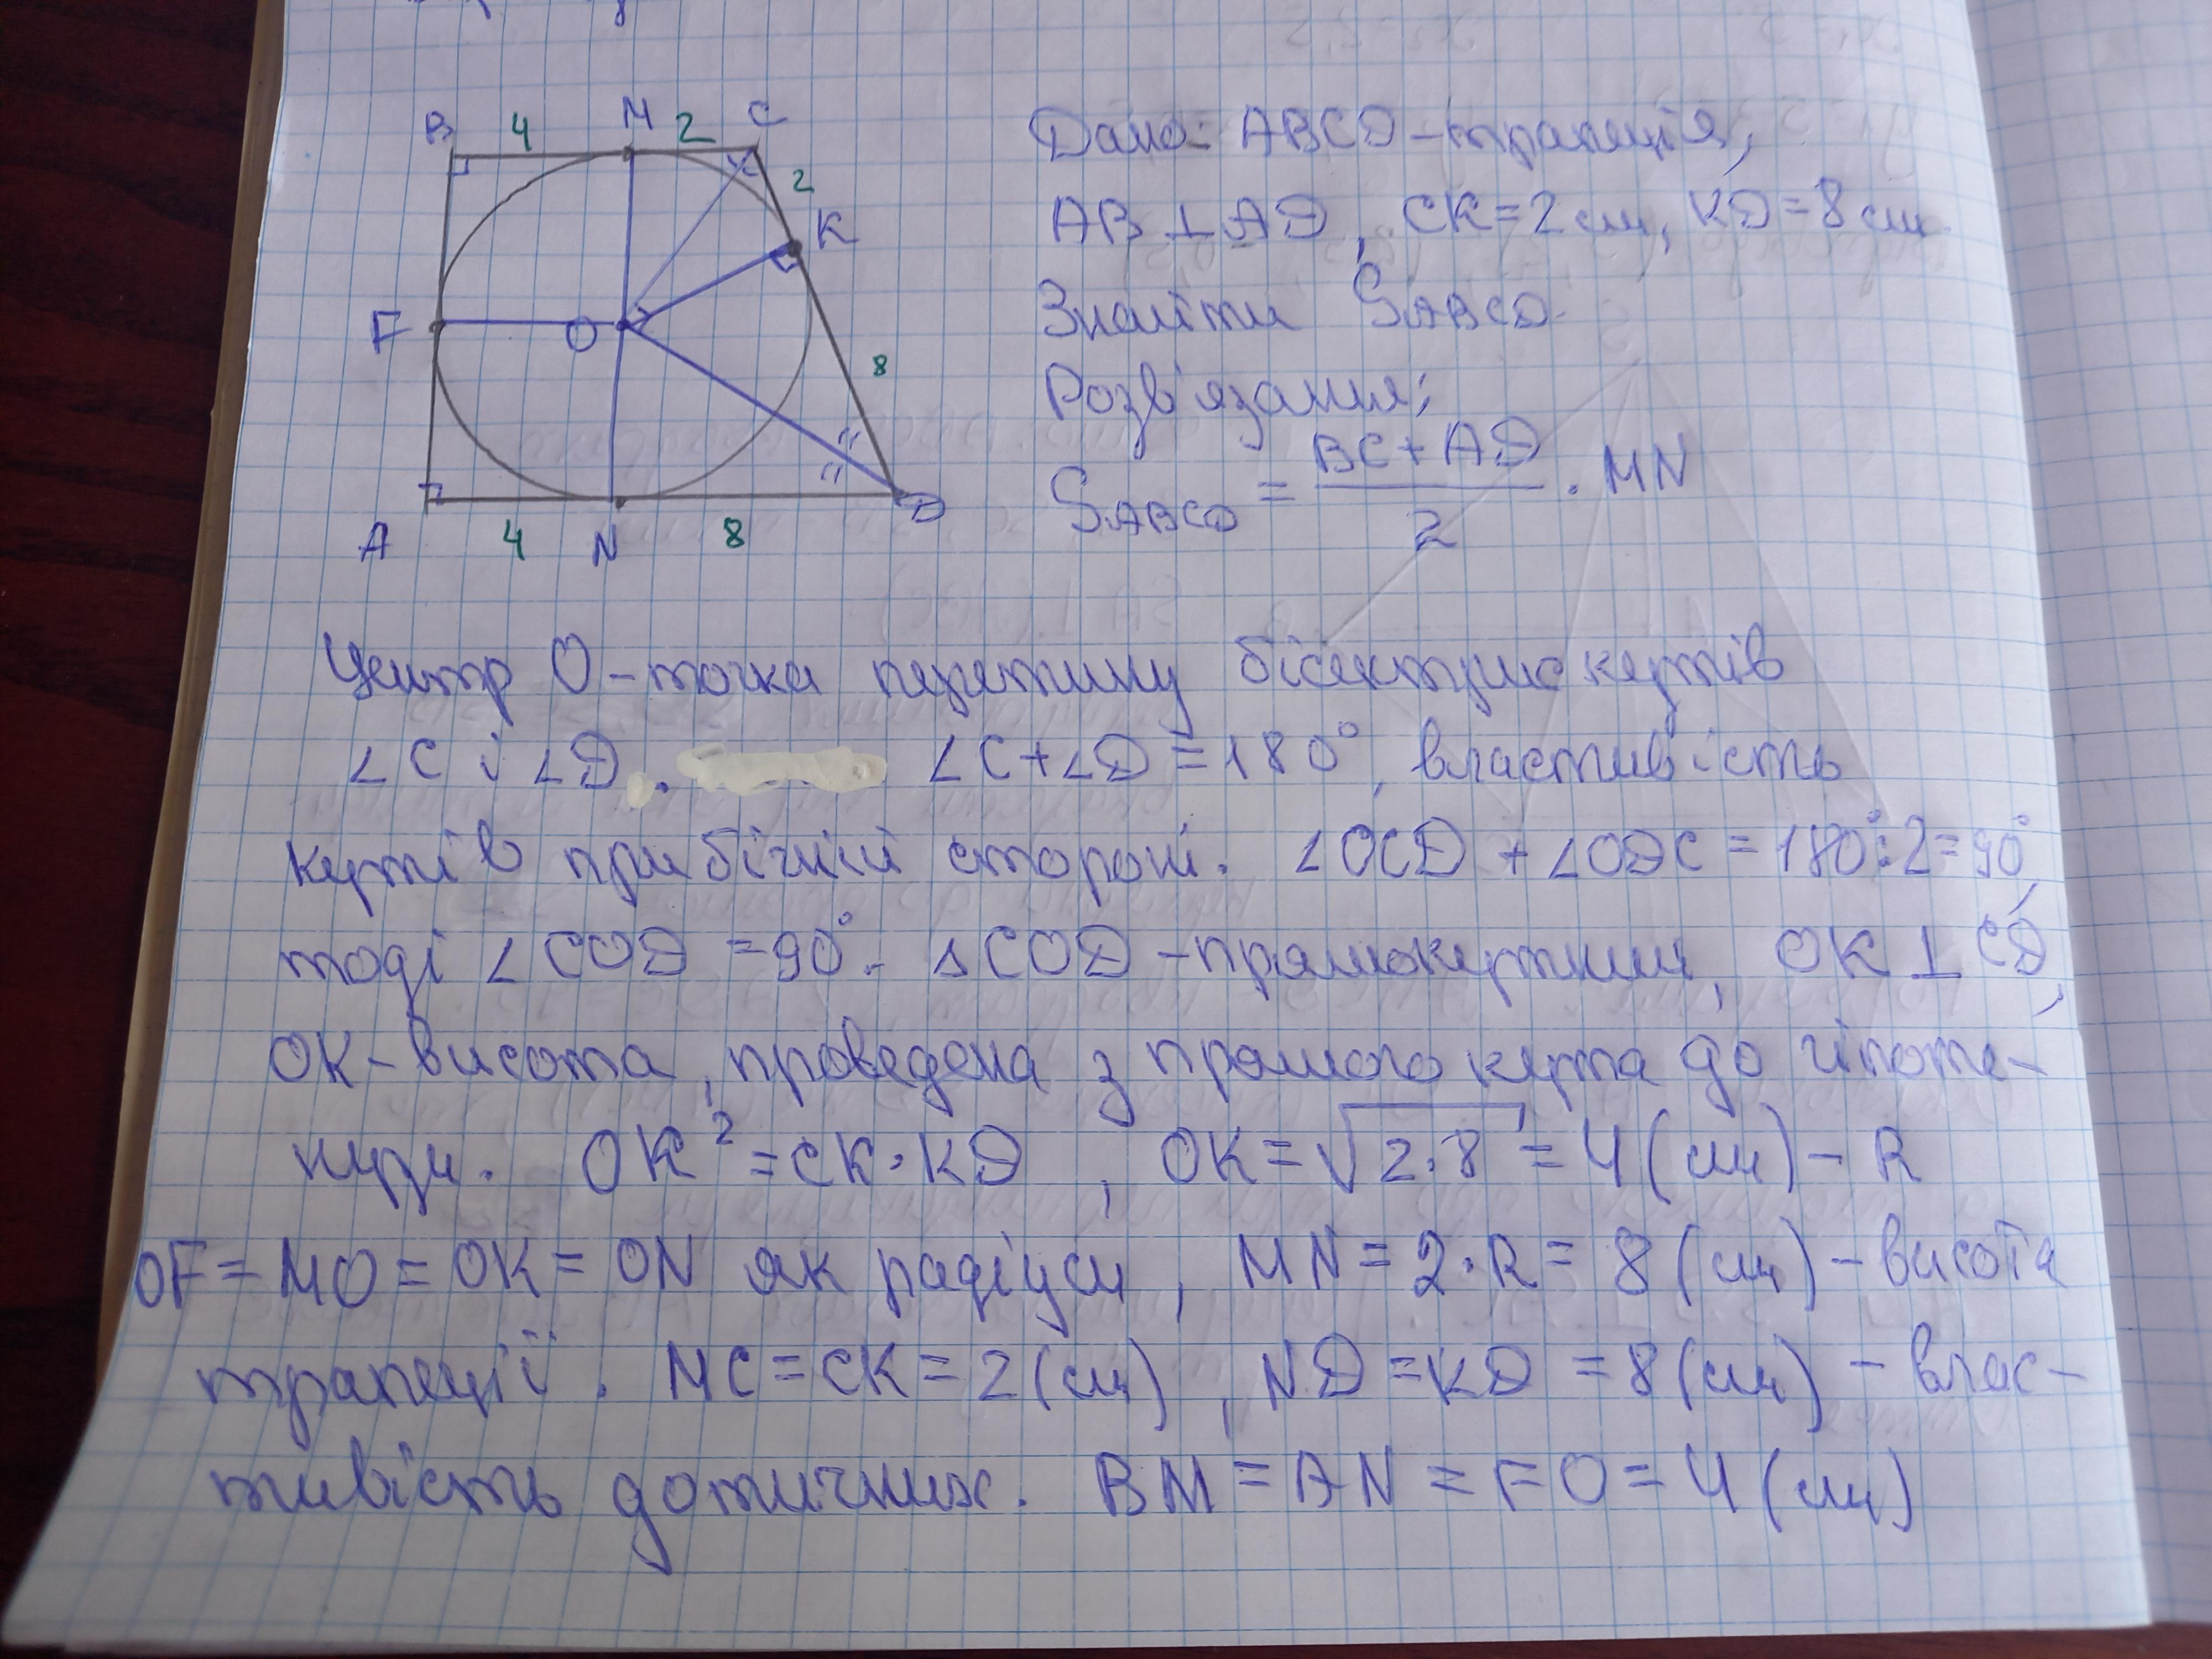 B 4 M 2 C
2
K
F O
8
A 4 N 8 D
Дано: ABCD – трапеція,
AB ⊥ AD, CK = 2 см, KD = 8 см.
Знайти S_ABCD.
Розв'язання:
S_ABCD = (BC + AD)/2 · MN
Центр O – точка перетину бісектрис кутів
∠C і ∠D. ∠C + ∠D = 180°, властивість
кутів при бічній стороні. ∠OCD + ∠ODC = 180°:2 = 90°,
тоді ∠COD = 90°. △COD – прямокутний, OK ⊥ CD,
OK – висота, проведена з прямого кута до гіпоте-
нузи. OK² = CK · KD, OK = √2·8 = 4 (см) – R
OF = MO = OK = ON як радіуси, MN = 2·R = 8 (см) – висота
трапеції. MC = CK = 2 (см), ND = KD = 8 (см) – влас-
тивість дотичних. BM = AN = FO = 4 (см)